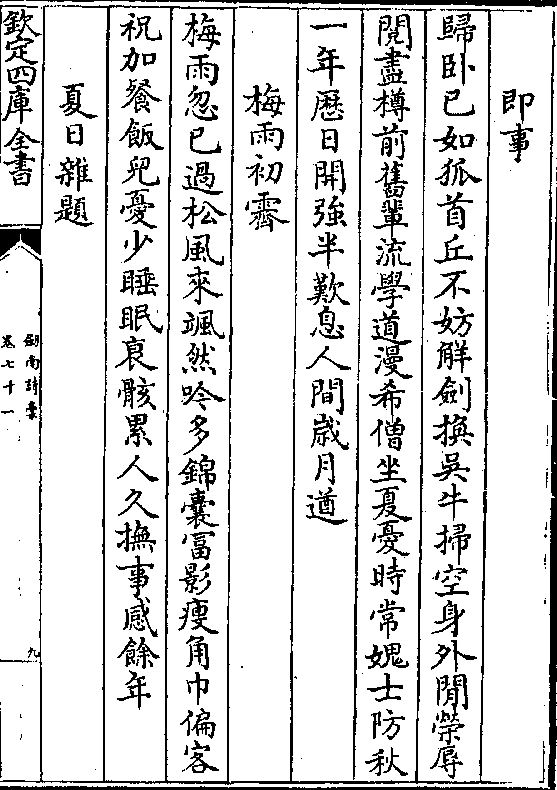 即事
歸卧已如狐首丘不妨觧劍換吳牛掃空身外閒榮辱
閱盡樽前舊輩流學道漫希僧坐夏憂時常媿士防秋
一年歷日開強半歎息人間歲月遒
梅雨初霽
梅雨忽已過松風來颯然吟多錦囊冨影瘦角巾偏客
祝加餐飯兒憂少睡眠衰骸累人久撫事感餘年
夏日雜題
欽定四庫全書
劍南詩稾
卷七十一
九